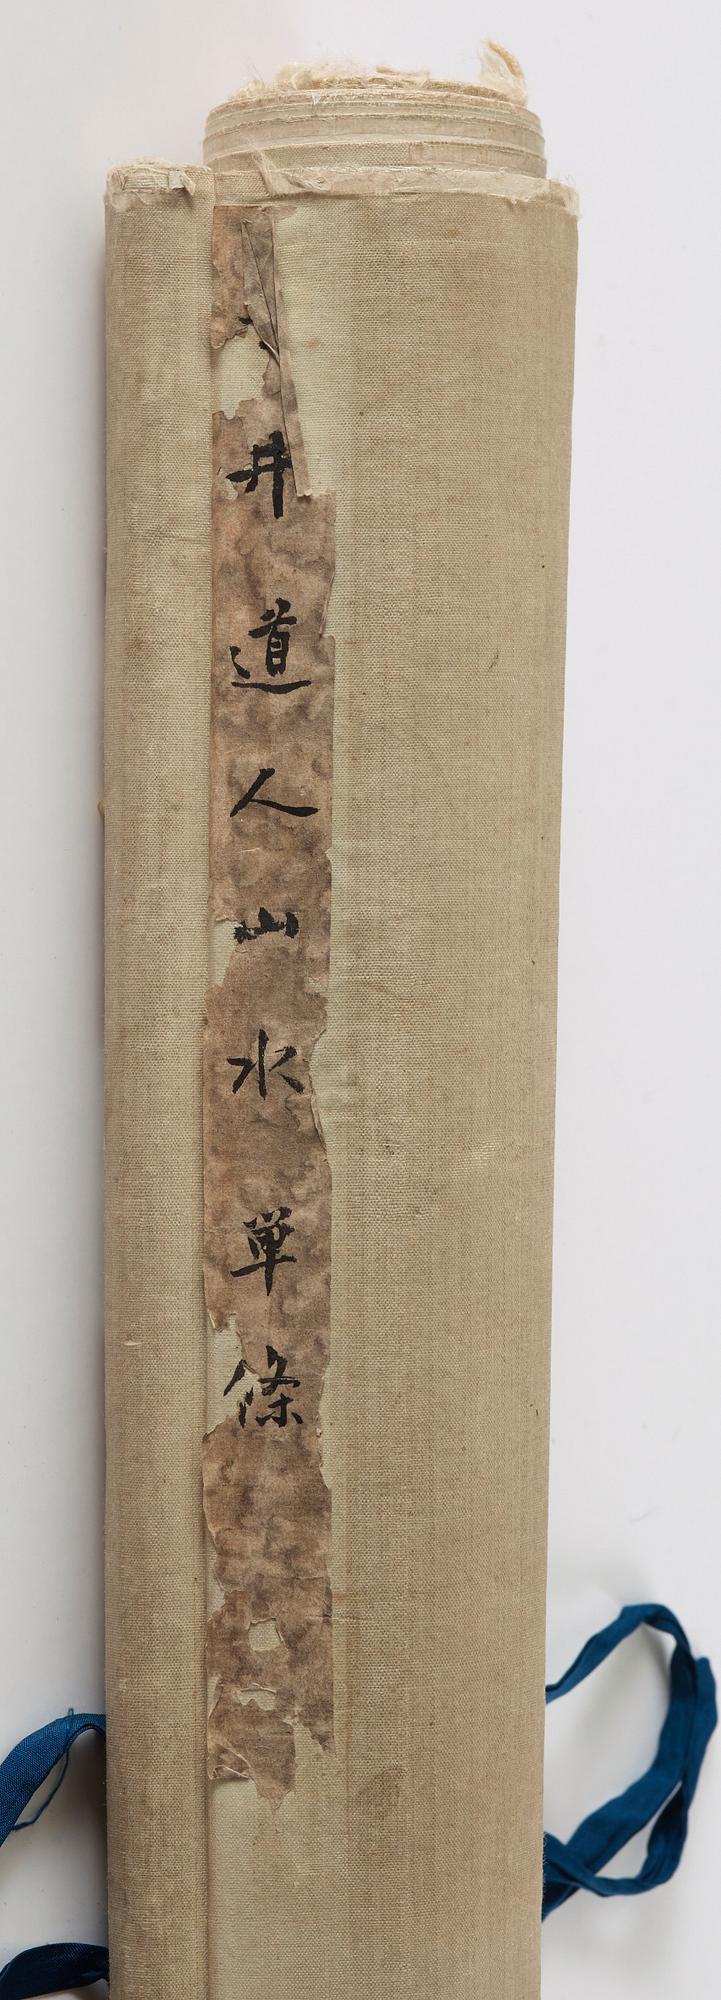 井道人山水単條